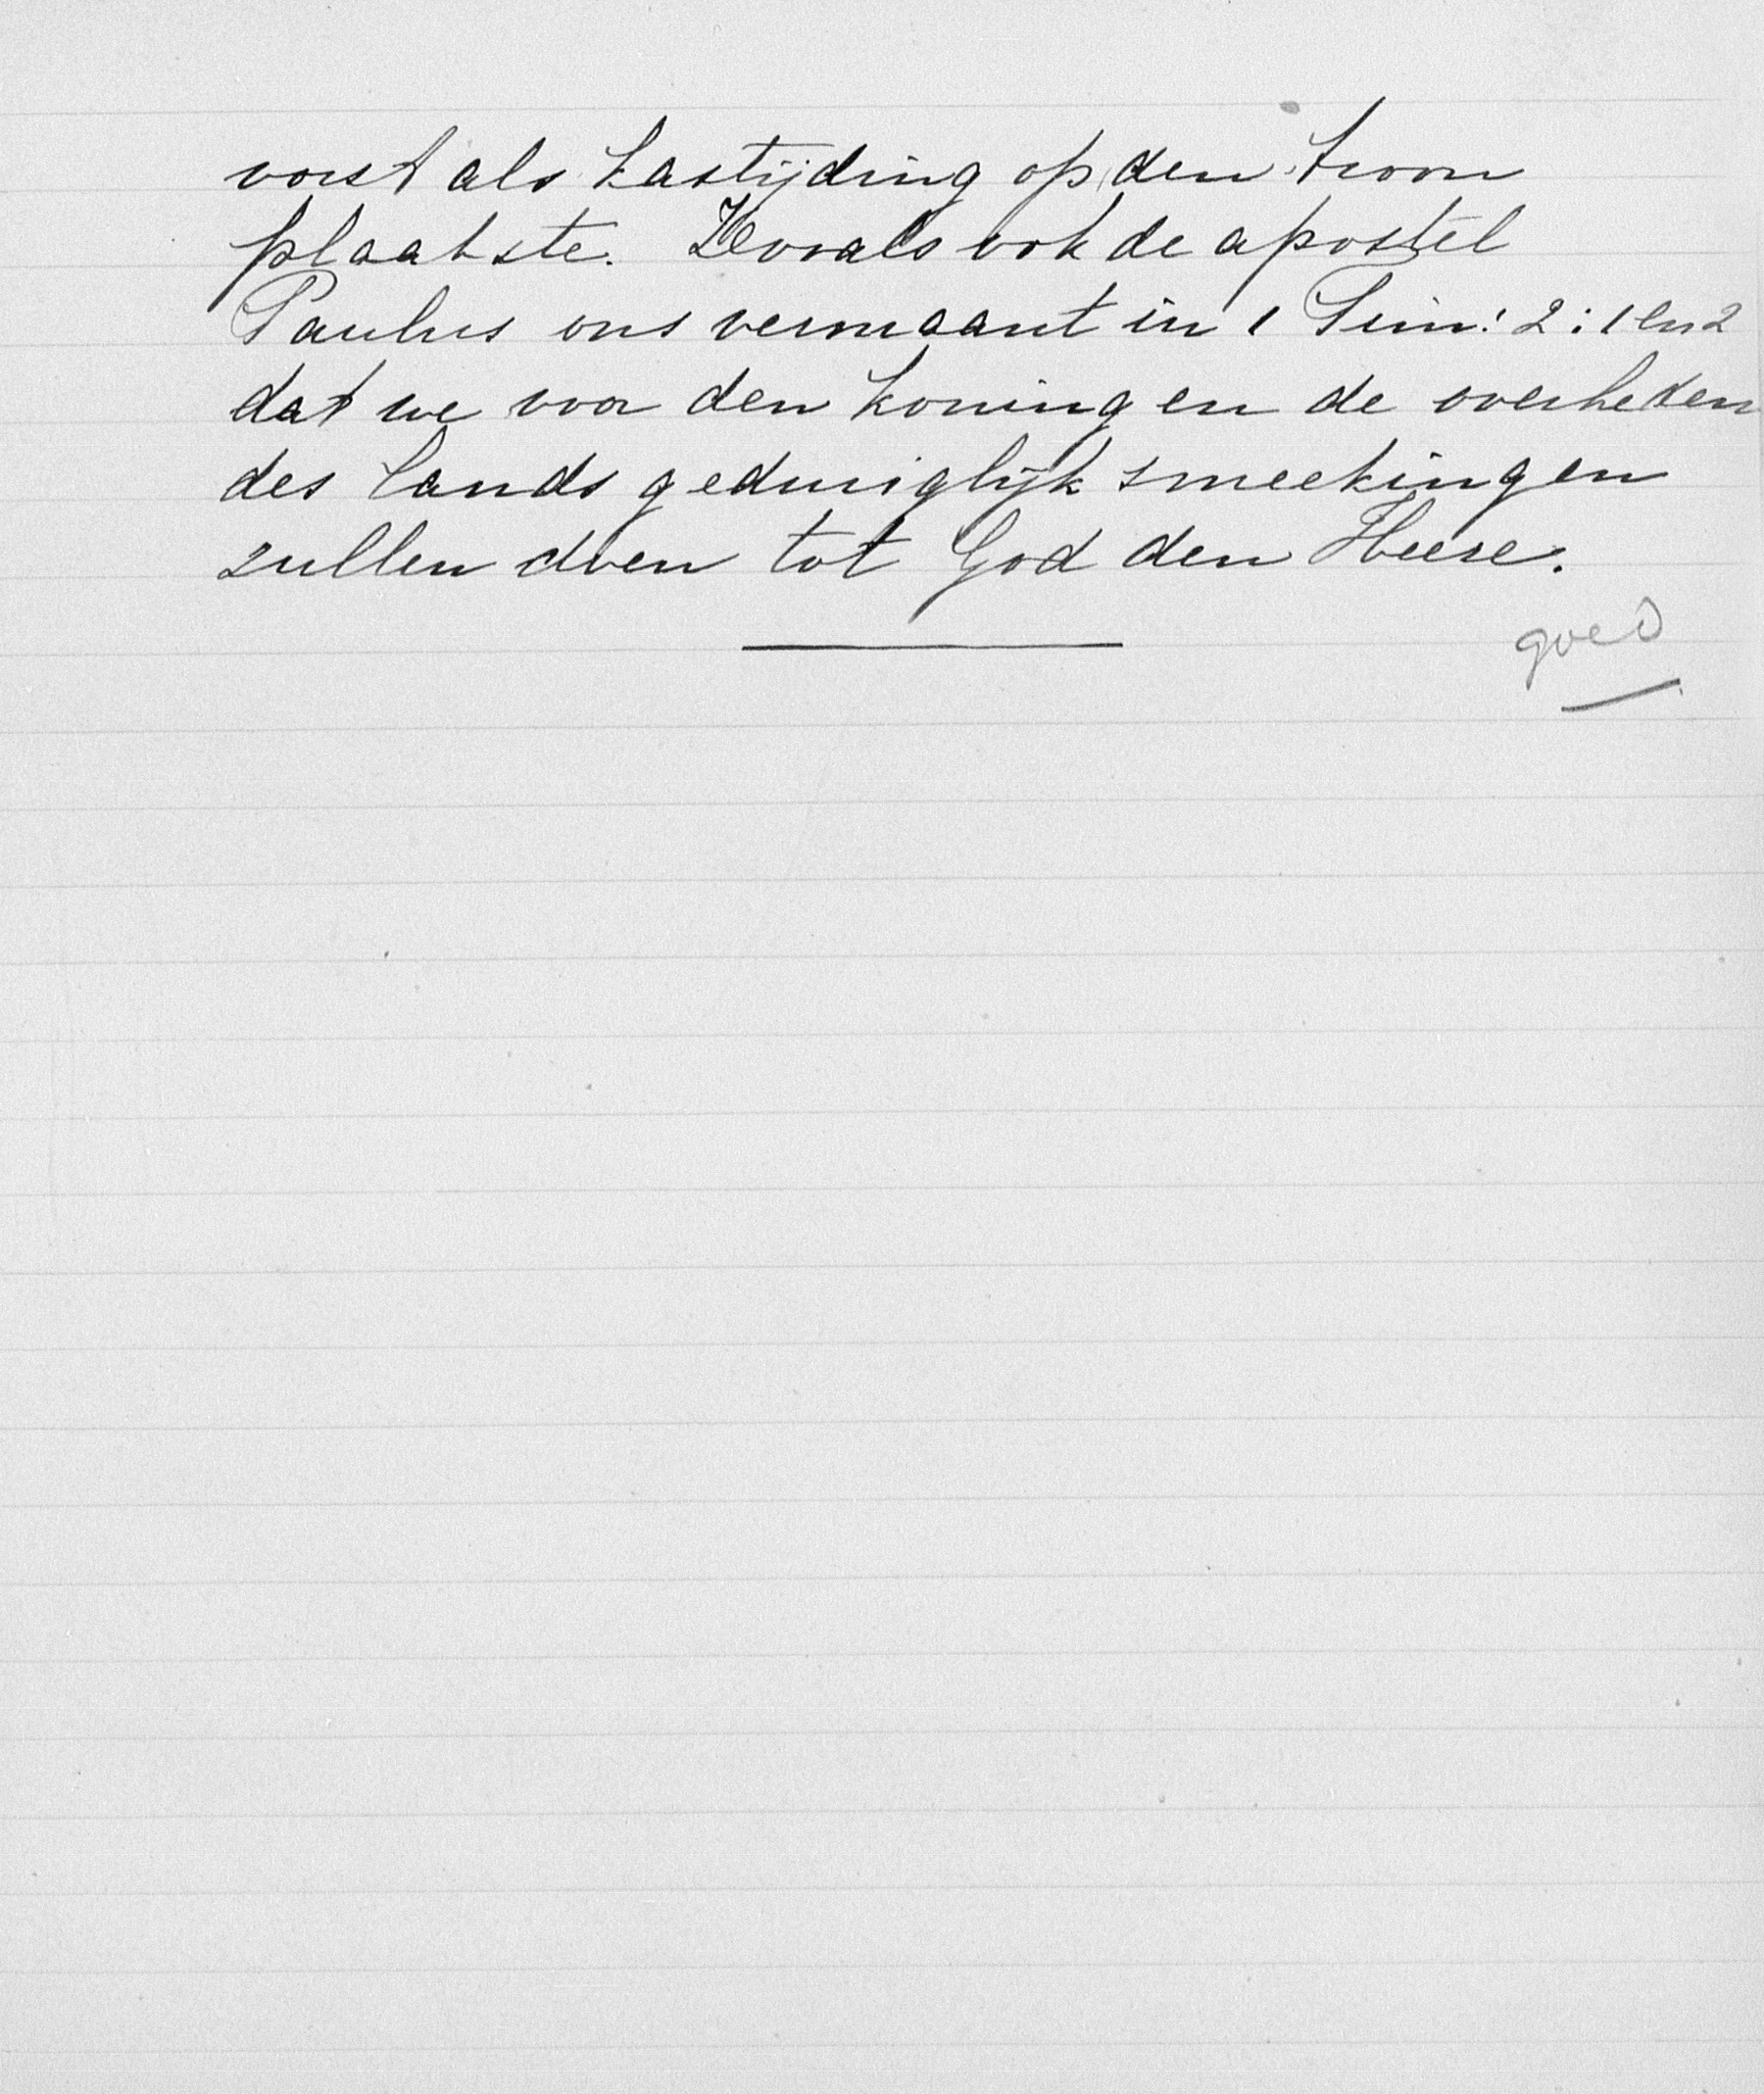 vorst als kastijding op den troon
plaatste. Zooals ook de apostel
Paulus ons vermaant in 1 Tim: 2:1 en 2
dat we voor den koning en de overheden
des lands geduriglijk smeekingen
zullen doen tot God den Heere.
goed